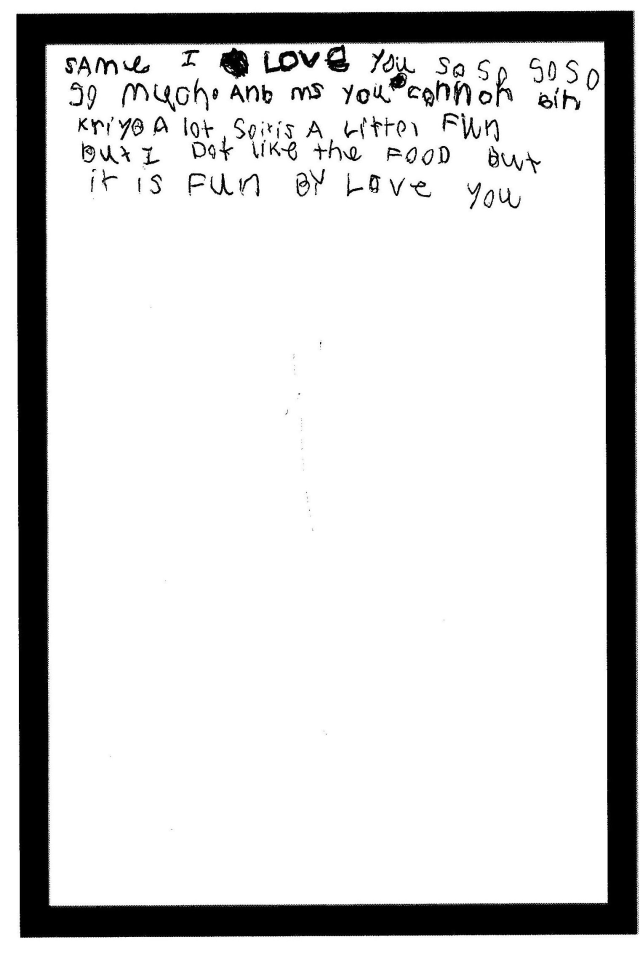 SAMUE I LOVE YOU SO SO SO SO
SO MUCH. AND MS YOU CONNOH BIN
KRIYO A lot SO it is A Litter FUN
But I Dot like the FOOD But
it is FUN BY LOVE YOU